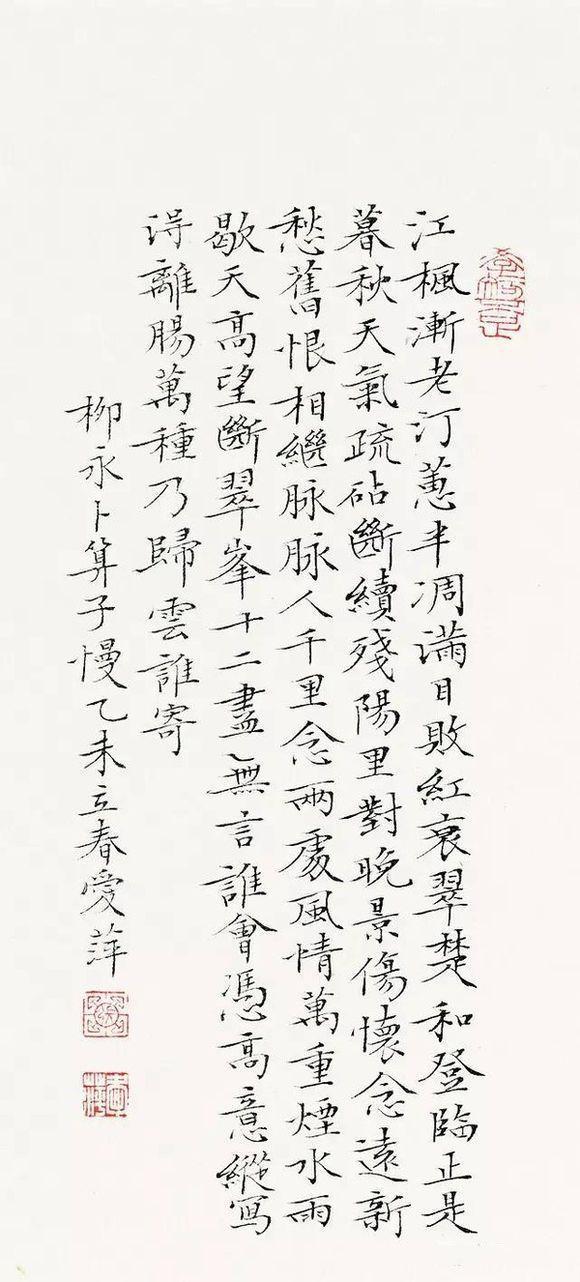 江楓漸老汀蕙半凋滿目敗紅衰翠楚和登臨正是
暮秋天氣疏砧斷續殘陽里對晚景傷懷念遠新
愁舊恨相繼脉脉人千里念兩處風情萬重煙水雨
歇天高望斷翠峯十二盡無言誰會憑高意縱寫
得離腸萬種乃歸雲誰寄
柳永卜算子慢乙未立春愛萍